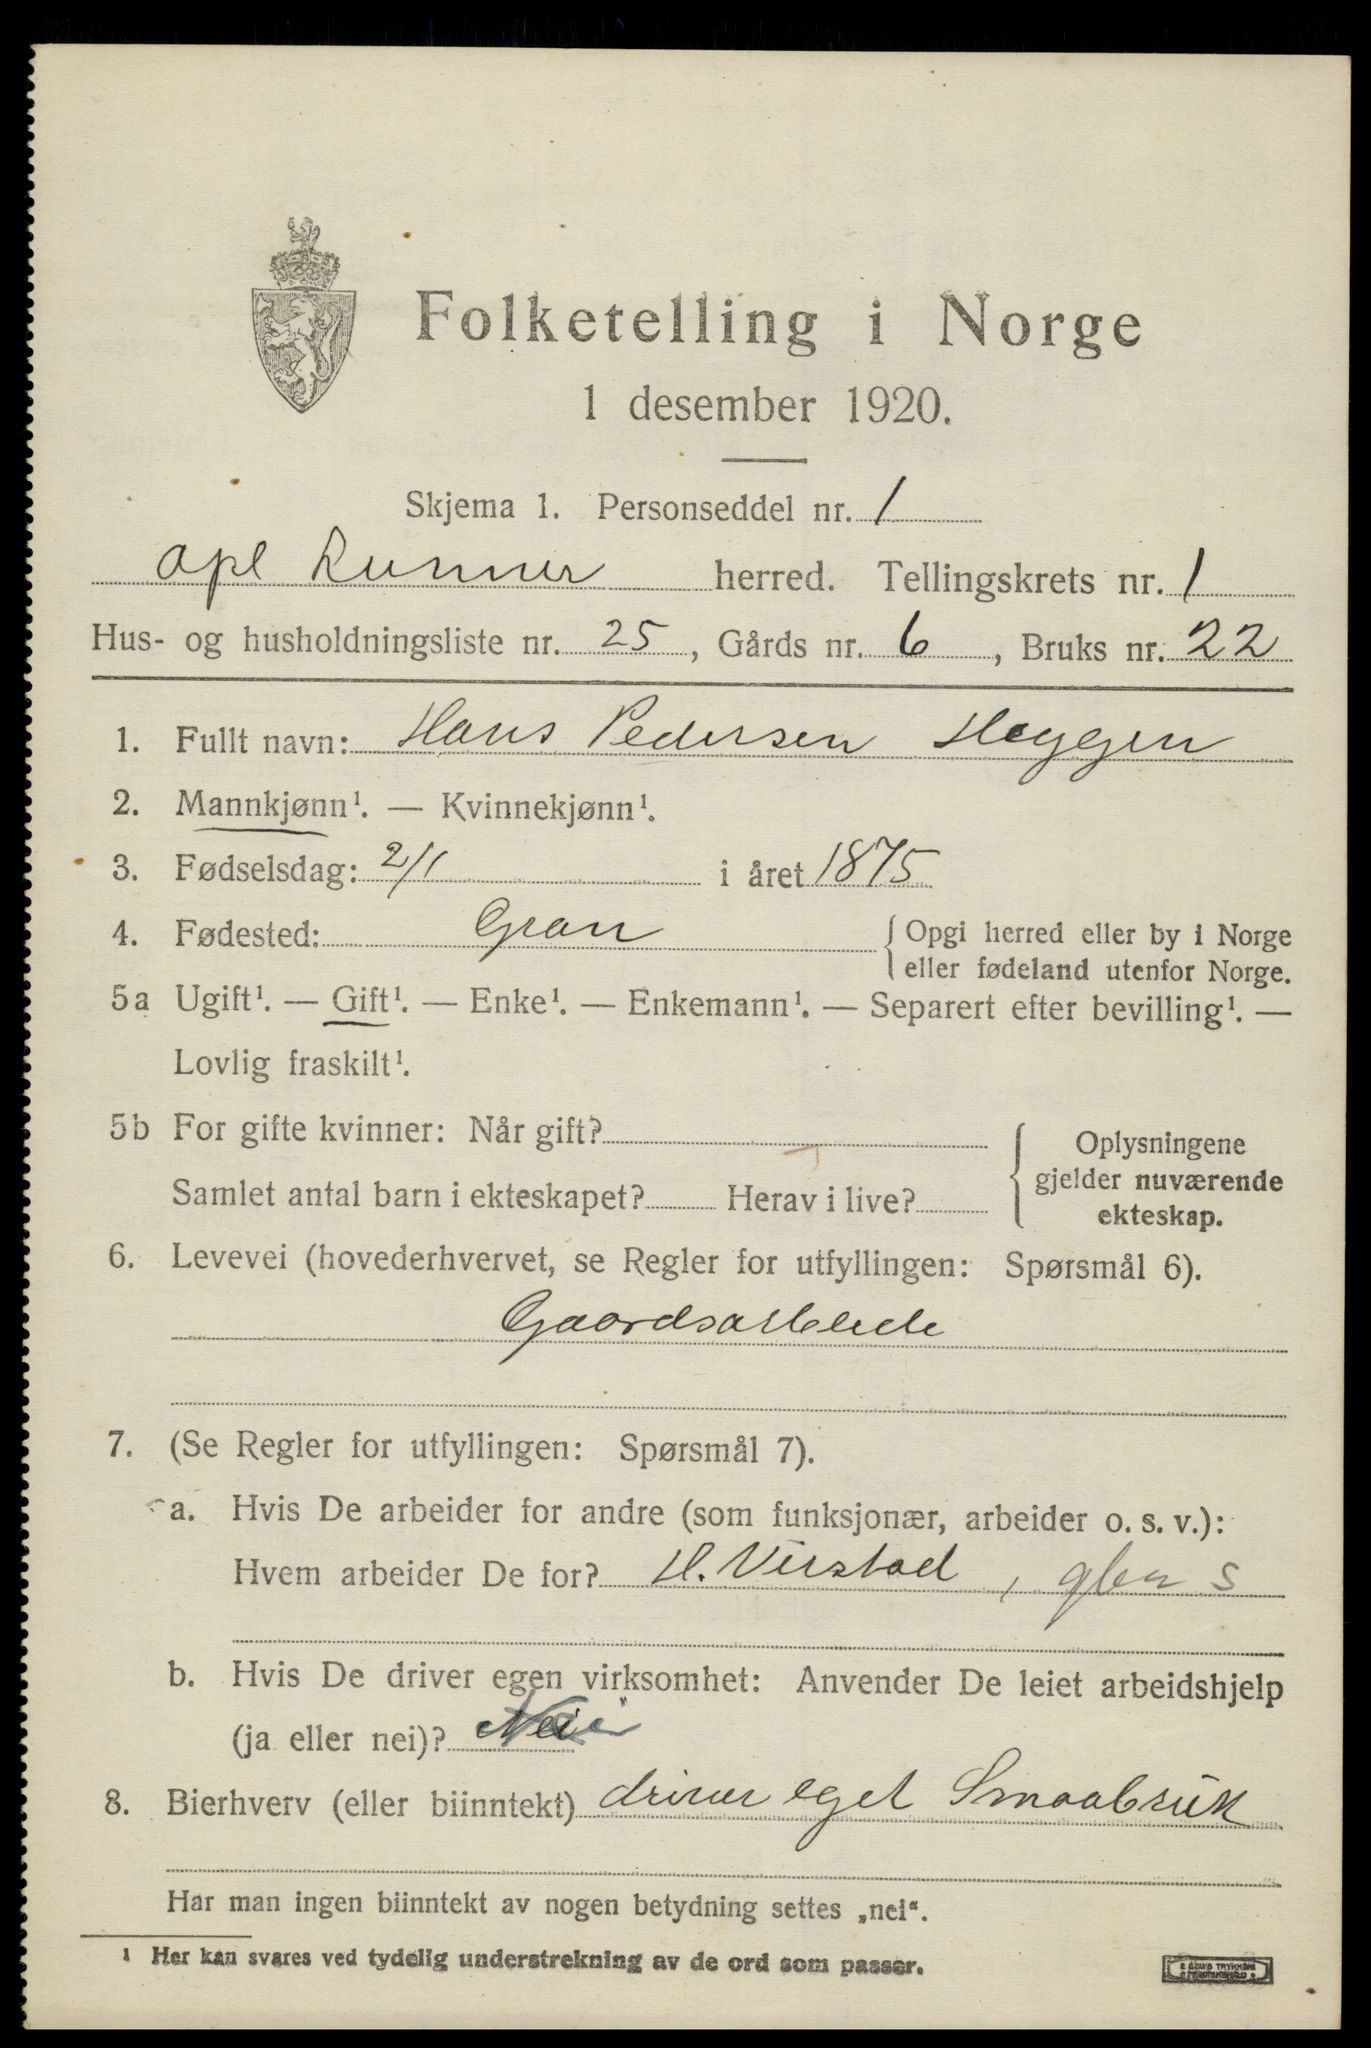 Folketelling i Norge
1 desember 1920.
Skjema 1. Personseddel nr. 1
Opl Lunner herred. Tellingskrets nr. 1
Hus- og husholdningsliste nr. 25, Gårds nr. 6, Bruks nr. 22
1. Fullt navn: Hans Pedersen Heggen
2. Mannkjønn¹. — Kvinnekjønn¹.
3. Fødselsdag: 2/1 i året 1875
4. Fødested: Gran
{ Opgi herred eller by i Norge
eller fødeland utenfor Norge.
5a Ugift¹. — Gift¹. — Enke¹. — Enkemann¹. — Separert efter bevilling¹. —
Lovlig fraskilt¹.
5b For gifte kvinner: Når gift?
Samlet antal barn i ekteskapet? Herav i live?
{ Oplysningene
gjelder nuværende
ekteskap.
6. Levevei (hovederhvervet, se Regler for utfyllingen: Spørsmål 6).
Gaardsarbeide
7. (Se Regler for utfyllingen: Spørsmål 7).
a. Hvis De arbeider for andre (som funksjonær, arbeider o. s. v.):
Hvem arbeider De for? H. , gbr s
b. Hvis De driver egen virksomhet: Anvender De leiet arbeidshjelp
(ja eller nei)? Nei
8. Bierhverv (eller biinntekt) driver eget Smaabruk
Har man ingen biinntekt av nogen betydning settes „nei“.
¹ Her kan svares ved tydelig understrekning av de ord som passer.